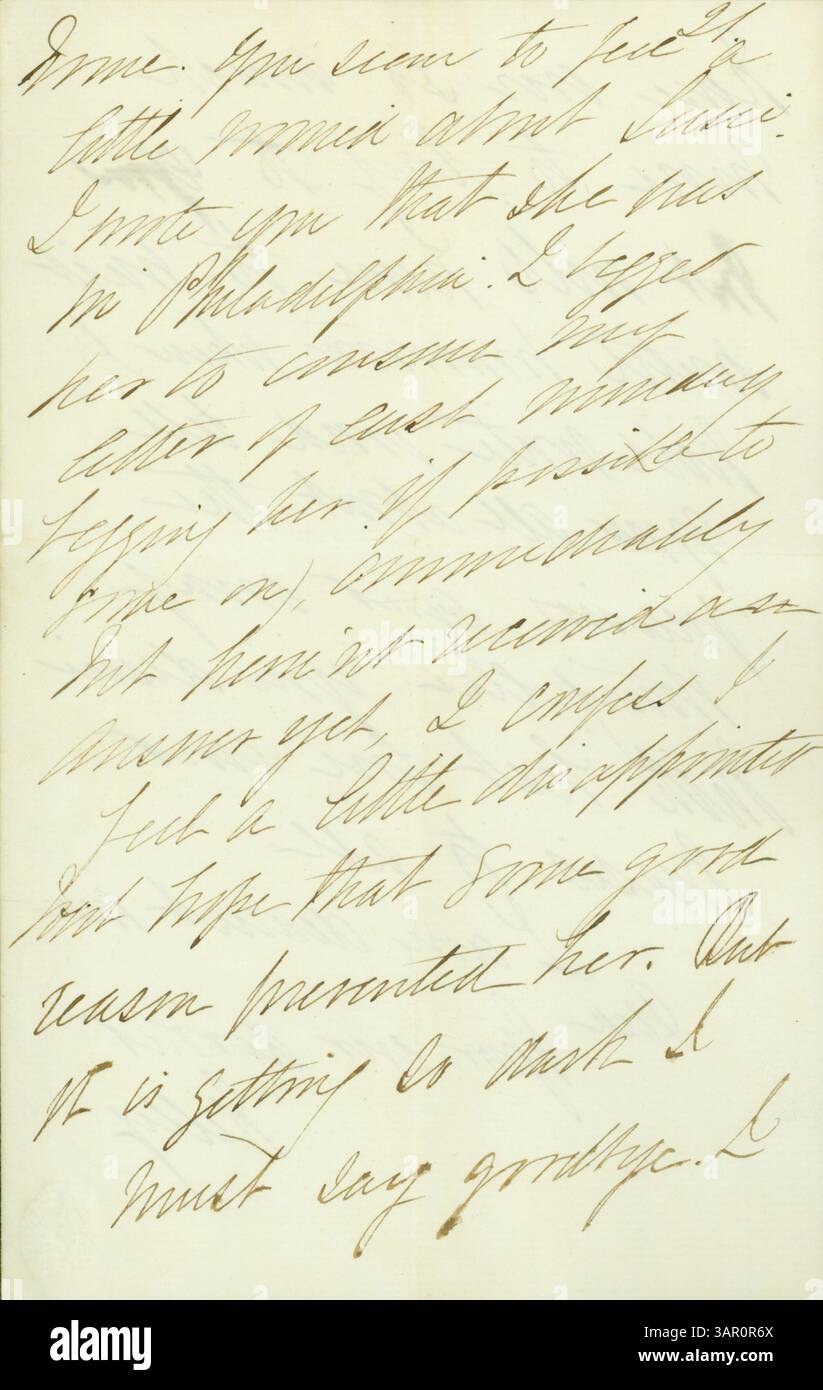 home. You seem to feel a
little worried about Susie.
I wrote you that she was
in Philadelphia. I begged
her to answer my
letter of last monday
begging her if possible to
come on), immediately
but have'nt received an
answer yet, I confess I
feel a little disappointed
but hope that some good
reason prevented her. But
it is getting so dark I
must say goodbye. I
alamy
alamy
Image ID: 3AR0R6X
www.alamy.com